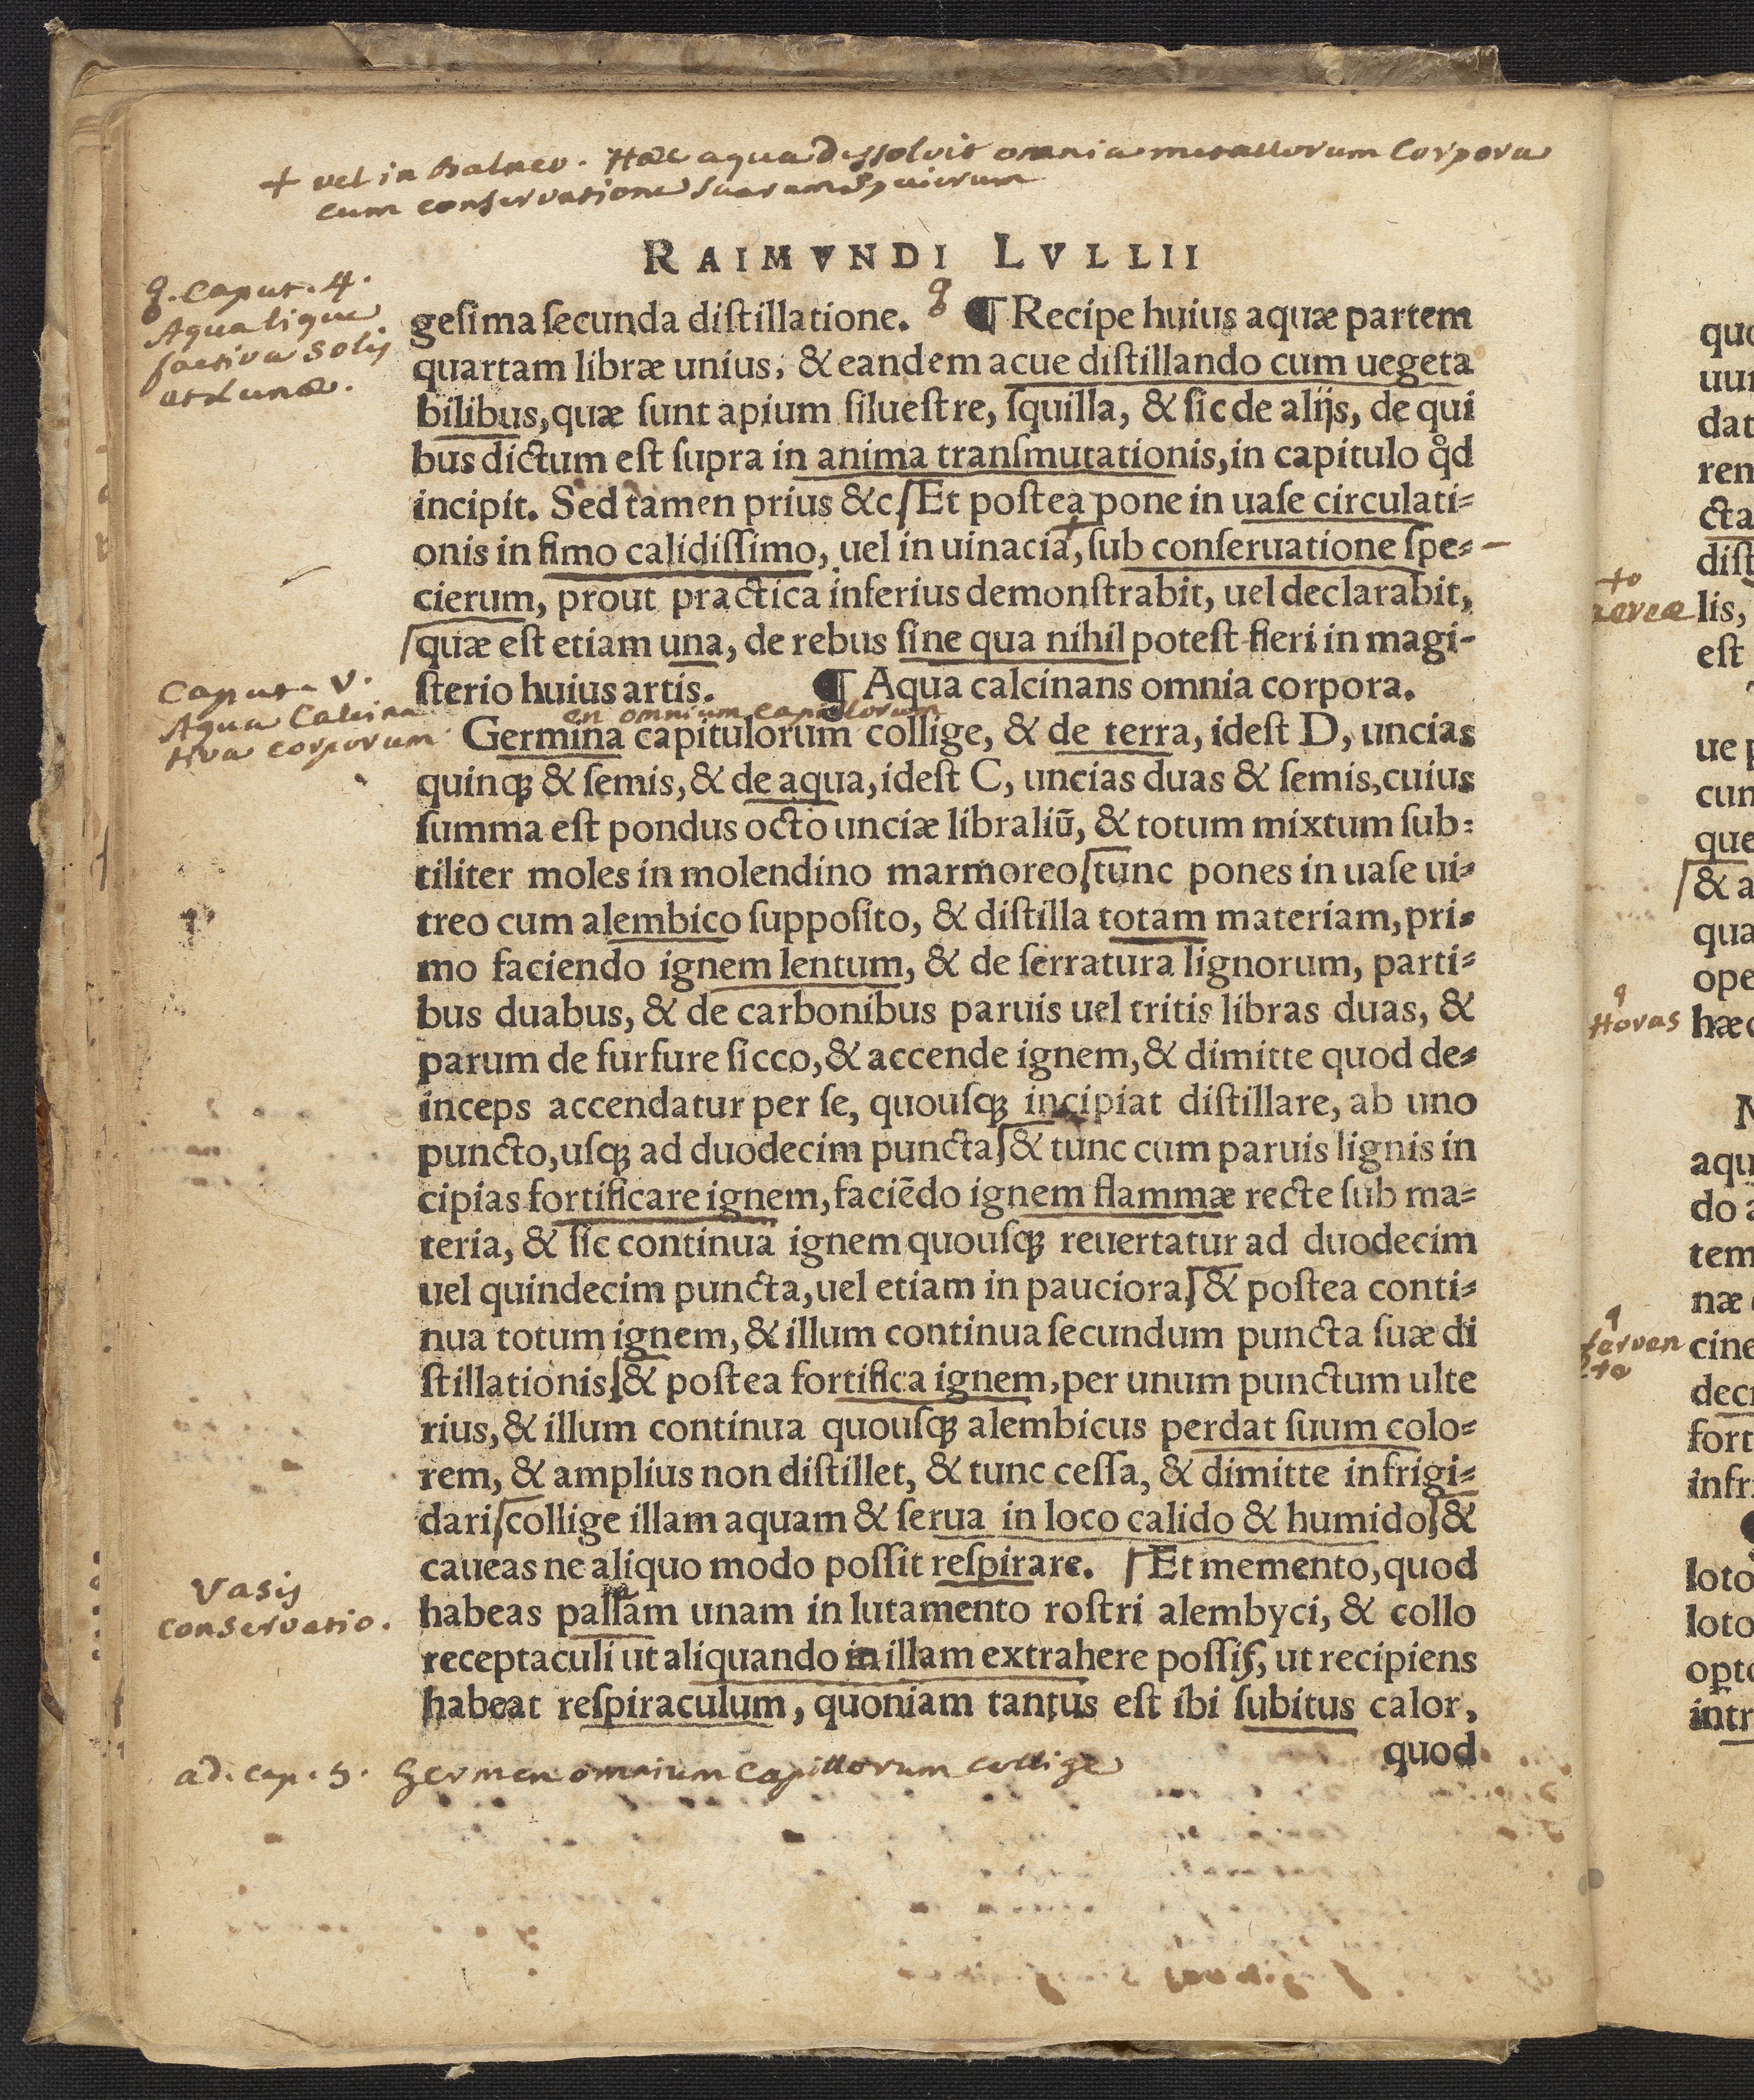 + vel in Balneo. Hæc aqua dissolvit omnia metallorum Corpora
cum conservatione suarum specierum
RAIMVNDI LVLLII
Caput. 4.
Aqua lique
factiva Solis
et Lunæ.
geſima ſecunda diſtillatione. ¶ Recipe huius aquæ partem
quartam libræ unius, & eandem acue diſtillando cum uegeta
bilibus, quæ ſunt apium ſilueſtre, ſquilla, & ſic de alijs, de qui
bus dictum eſt ſupra in anima tranſmutationis, in capitulo qd̊
incipit. Sed tamen prius &c. Et poſtea pone in uaſe circulati=
onis in fimo calidiſſimo, uel in uinacia+, ſub conſeruatione ſpe=
cierum, prout practica inferius demonſtrabit, uel declarabit,
quæ eſt etiam una, de rebus ſine qua nihil poteſt fieri in magi-
ſterio huius artis. ¶ Aqua calcinans omnia corpora.
Caput V.
Aqua Calcina
tiva corporum
en omnium capillorum
Germina capitulorum collige, & de terra, ideſt D, uncias
quinq; & ſemis, & de aqua, ideſt C, uncias duas & ſemis, cuius
ſumma eſt pondus octo unciæ libraliū, & totum mixtum ſub=
tiliter moles in molendino marmoreo, tunc pones in uaſe ui=
treo cum alembico ſuppoſito, & diſtilla totam materiam, pri=
mo faciendo ignem lentum, & de ſerratura lignorum, parti=
bus duabus, & de carbonibus paruis uel tritis libras duas, &
parum de furfure ſicco, & accende ignem, & dimitte quod de=
inceps accendatur per ſe, quouſq; incipiat diſtillare, ab uno
puncto, uſq; ad duodecim puncta, & tunc cum paruis lignis in
cipias fortificare ignem, faciēdo ignem flammæ recte ſub ma=
teria, & ſic continua ignem quouſq; reuertatur ad duodecim
uel quindecim puncta, uel etiam in pauciora, & poſtea conti=
nua totum ignem, & illum continua ſecundum puncta ſuæ di
ſtillationis, & poſtea fortifica ignem, per unum punctum ulte
rius, & illum continua quouſq; alembicus perdat ſuum colo=
rem, & amplius non diſtillet, & tunc ceſſa, & dimitte infrigi=
dari, collige illam aquam & ſerua in loco calido & humido, &
caueas ne aliquo modo poſſit reſpirare. Et memento, quod
Vasis
conservatio.
habeas paſſam unam in lutamento roſtri alembyci, & collo
receptaculi ut aliquando in illam extrahere poſſis, ut recipiens
habeat reſpiraculum, quoniam tantus eſt ibi ſubitus calor,
quod
ad. cap. 5. Germen omnium Capillorum collige
quo
uur
dat
rem
cta
diſt
aereæ
lis,
eſt
ue p
cun
que
& a
qua
ope
Horas
hæc
aqu
do a
tem
næ
cine
decr
fort
infr
loto
loto
opto
intr